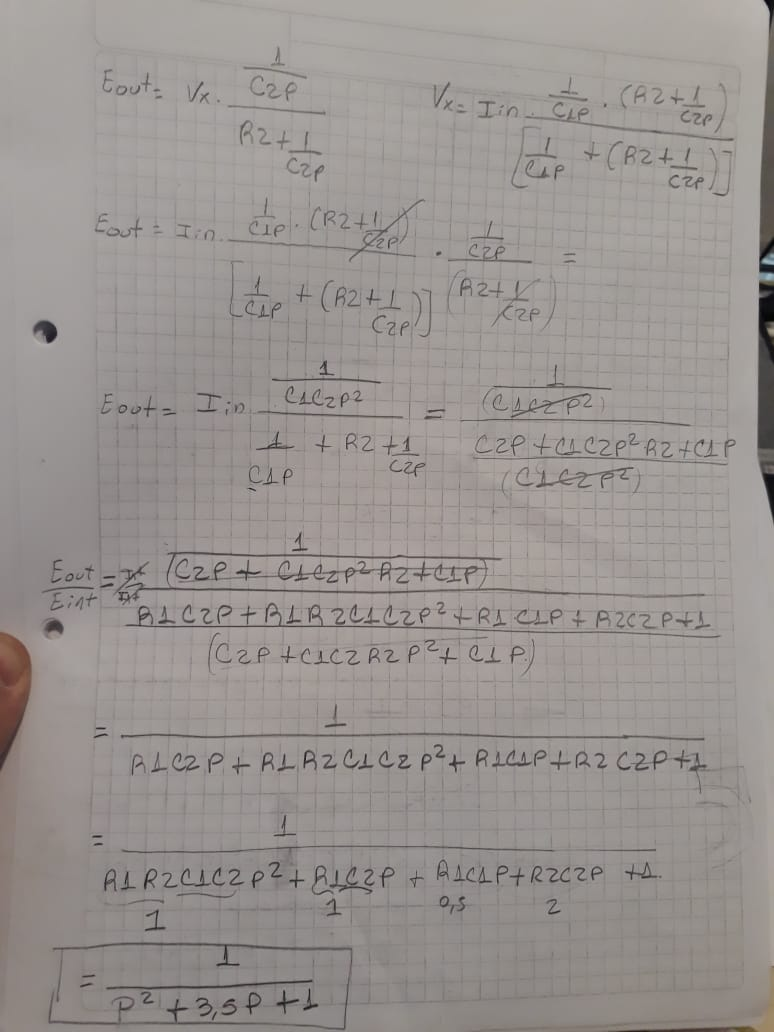 Eout = Vx · (1/C2P) / (R2 + 1/C2P)    Vx = Iin · (1/C1P · (R2 + 1/C2P)) / [1/C1P + (R2 + 1/C2P)]
Eout = Iin · (1/C1P · (R2 + 1/C2P)) / [1/C1P + (R2 + 1/C2P)] · (1/C2P) / (R2 + 1/C2P) =
Eout = Iin (1/C1C2P²) / (1/C1P + R2 + 1/C2P) = (1/(C1C2P²)) / ((C2P + C1C2P²R2 + C1P)/(C1C2P²))
Eout/Eint = (1/(C2P + C1C2P²R2 + C1P)) / ((R1C2P + R1R2C1C2P² + R1C1P + R2C2P + 1)/(C2P + C1C2R2P² + C1P))
= 1 / (R1C2P + R1R2C1C2P² + R1C1P + R2C2P + 1)
= 1 / (R1R2C1C2P² + R1C2P + R1C1P + R2C2P + 1.)
1 1 0,5 2
= 1 / (P² + 3,5P + 1)